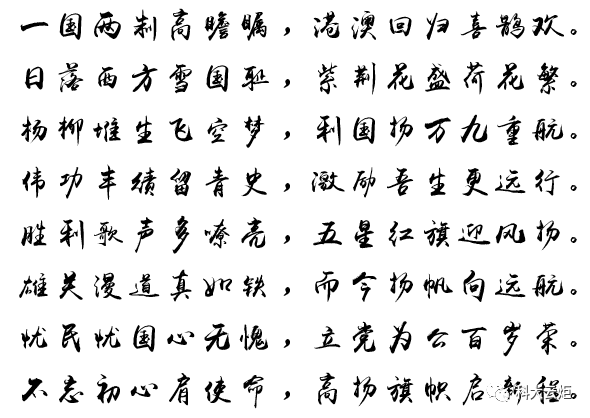 一国两制高瞻瞩，港澳回归喜鹊欢。
日落西方雪国耻，紫荆花盛荷花繁。
杨柳堆生飞空梦，利国扬万九重航。
伟功丰绩留青史，激励吾生更远行。
胜利歌声多嘹亮，五星红旗迎风扬。
雄关漫道真如铁，而今扬帆向远航。
忧民忧国心无愧，立党为公百岁荣。
不忘初心肩使命，高扬旗帜启新程。
科大云炬